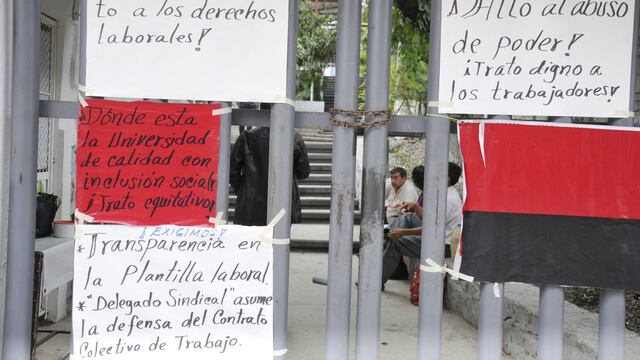 to a los derechos
laborales!
¡Alto al abuso
de poder!
¡Trato digno a
los trabajadores!
¿Dónde esta
la Universidad
de calidad con
inclusión social?
¡Trato equitativo
¡EXIGIMOS!
*Transparencia en
la Plantilla laboral.
*"Delegado Sindical" asume
la defensa del Contrato
Colectivo de Trabajo.